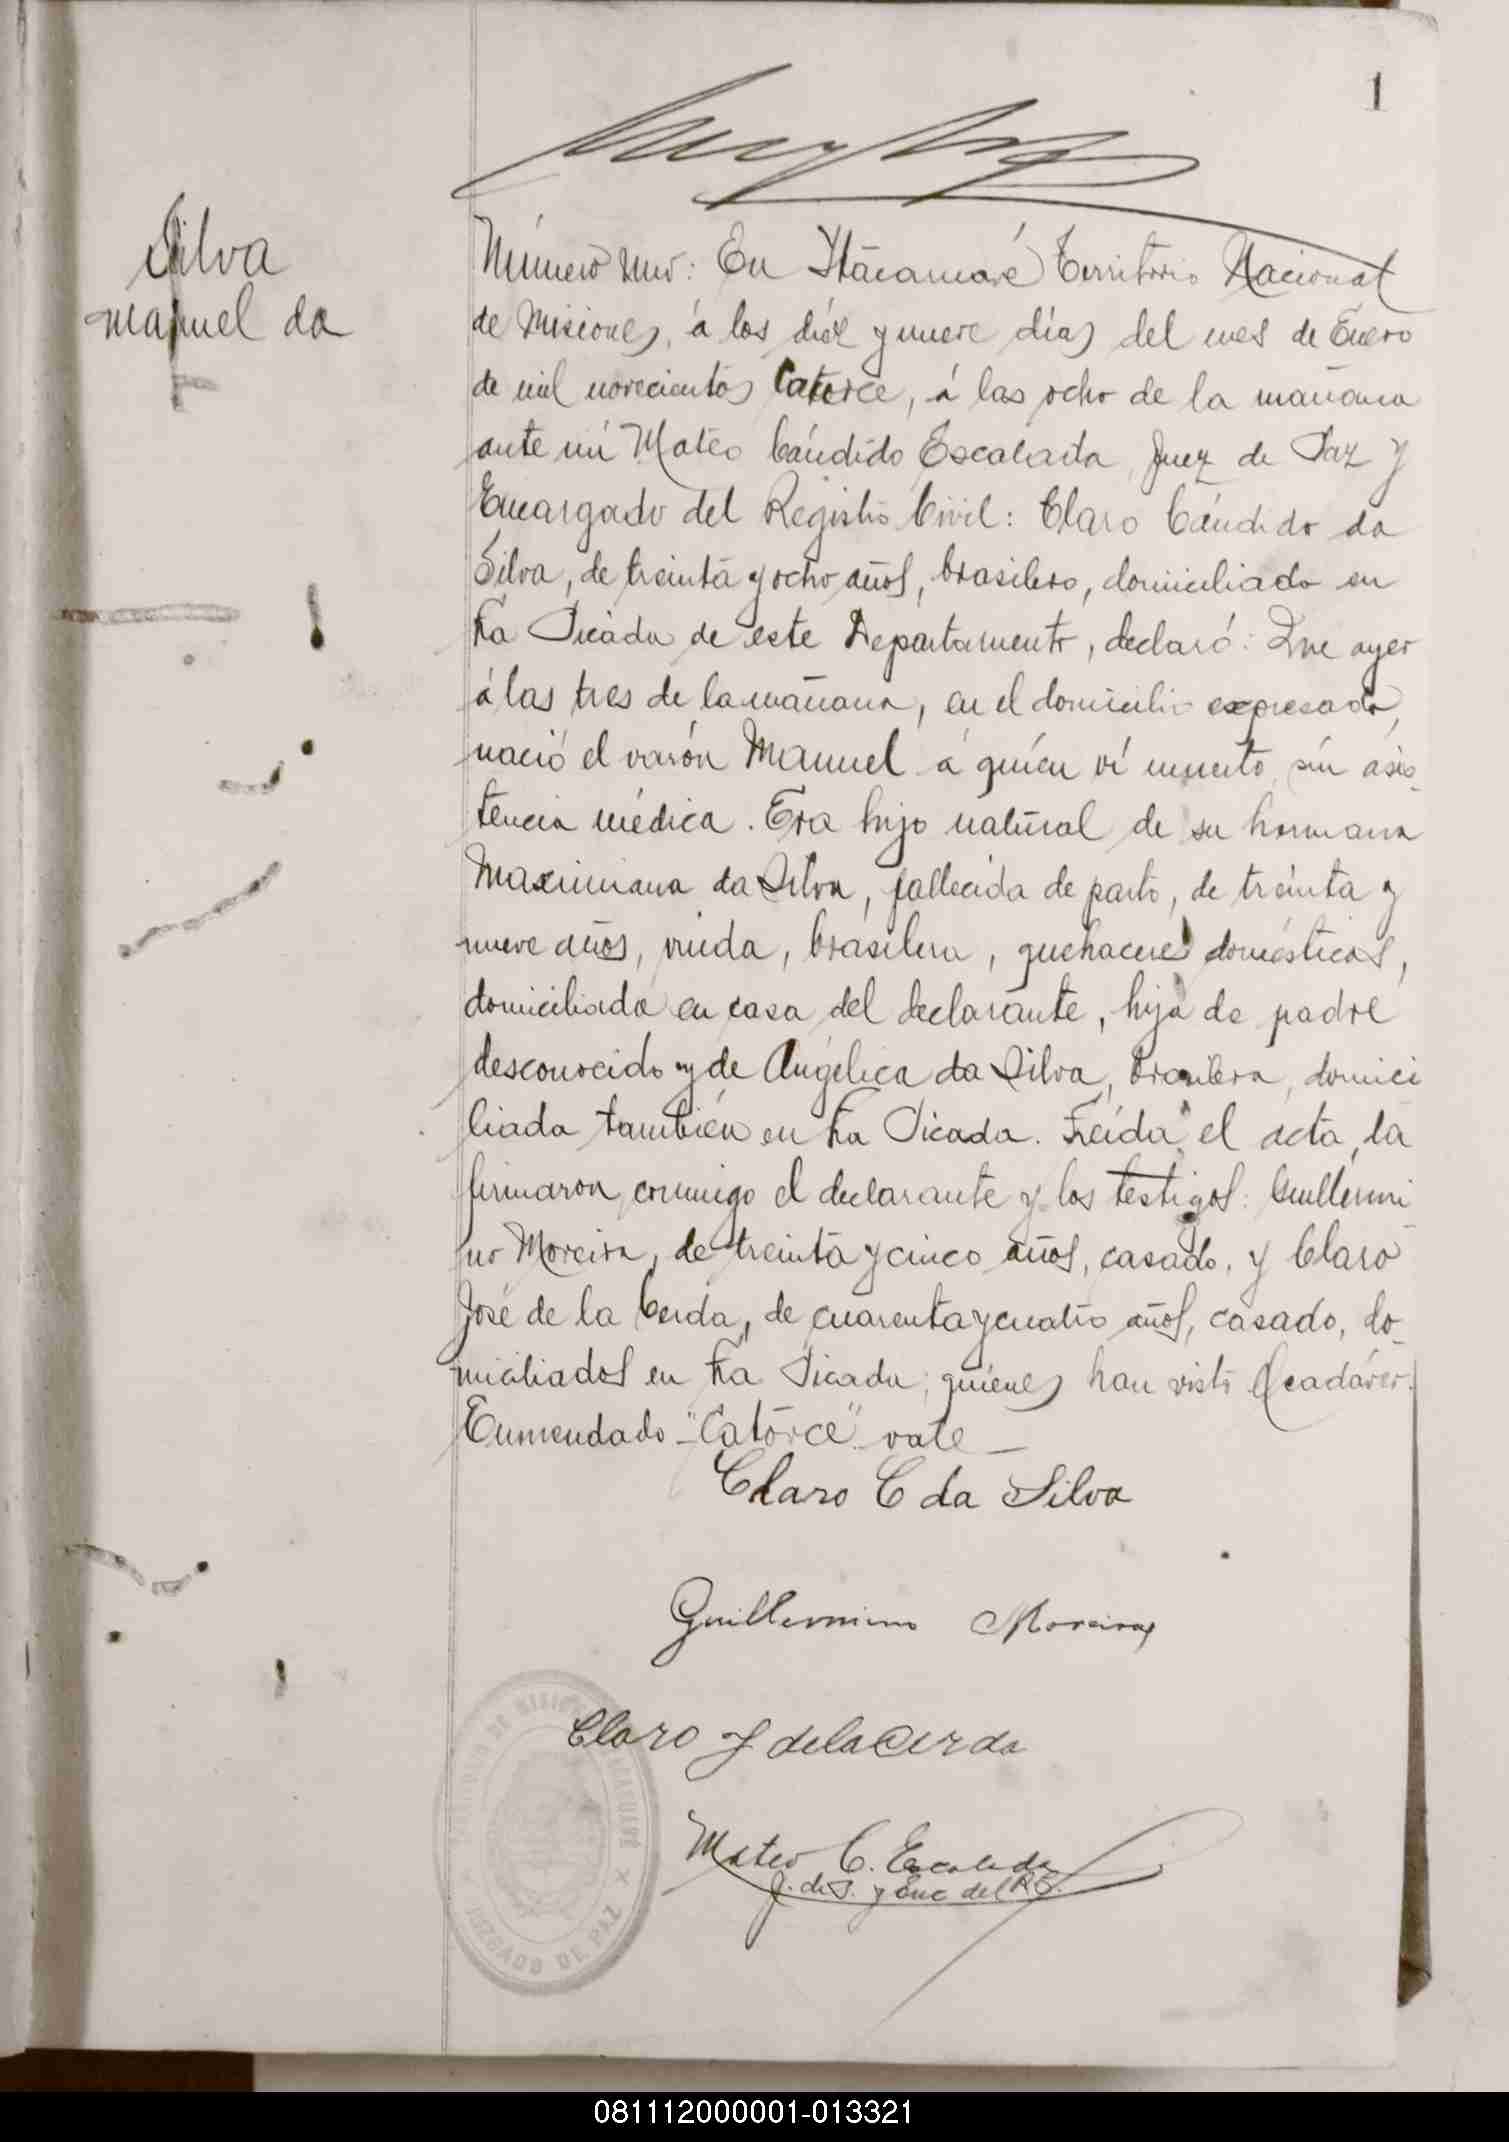 1
Silva
Manuel da
Número uno: En Itacaruaré Territorio Nacional
de Misiones, á los diéz y nueve días del mes de Enero
de mil novecientos Catorce, á las ocho de la mañana
ante mí Mateo Cándido Escalada, Juez de Paz y
Encargado del Registro Civil: Claro Cándido da
Silva, de treinta y ocho años, brasilero, domiciliado en
La Picada de este Departamento, declaró: Que ayer
á las tres de la mañana, en el domicilio expresado,
nació el varón Manuel á quién ví muerto, sin asis-
tencia médica. Era hijo natural de su hermana
Maximiana da Silva, fallecida de parto, de treinta y
nueve años, viuda, brasilera, quehaceres domésticos,
domiciliada en casa del declarante, hija de padre
desconocido y de Angélica da Silva, brasilera, domici
liada también en La Picada. Leída el acta, la
firmaron conmigo el declarante y los testigos: Guillermi
no Moreira, de treinta y cinco años, casado, y Claro
José de la Cerda, de cuarenta y cuatro años, casado, do-
miciliados en La Picada, quienes han visto el cadáver.
Enmendado "Catorce" vale
Claro C da Silva
Guillermino Moreira
Claro J delaCerda
Mateo C. Escalada
J. de P. y Enc del R C.
JUZGADO DE PAZ
081112000001-013321